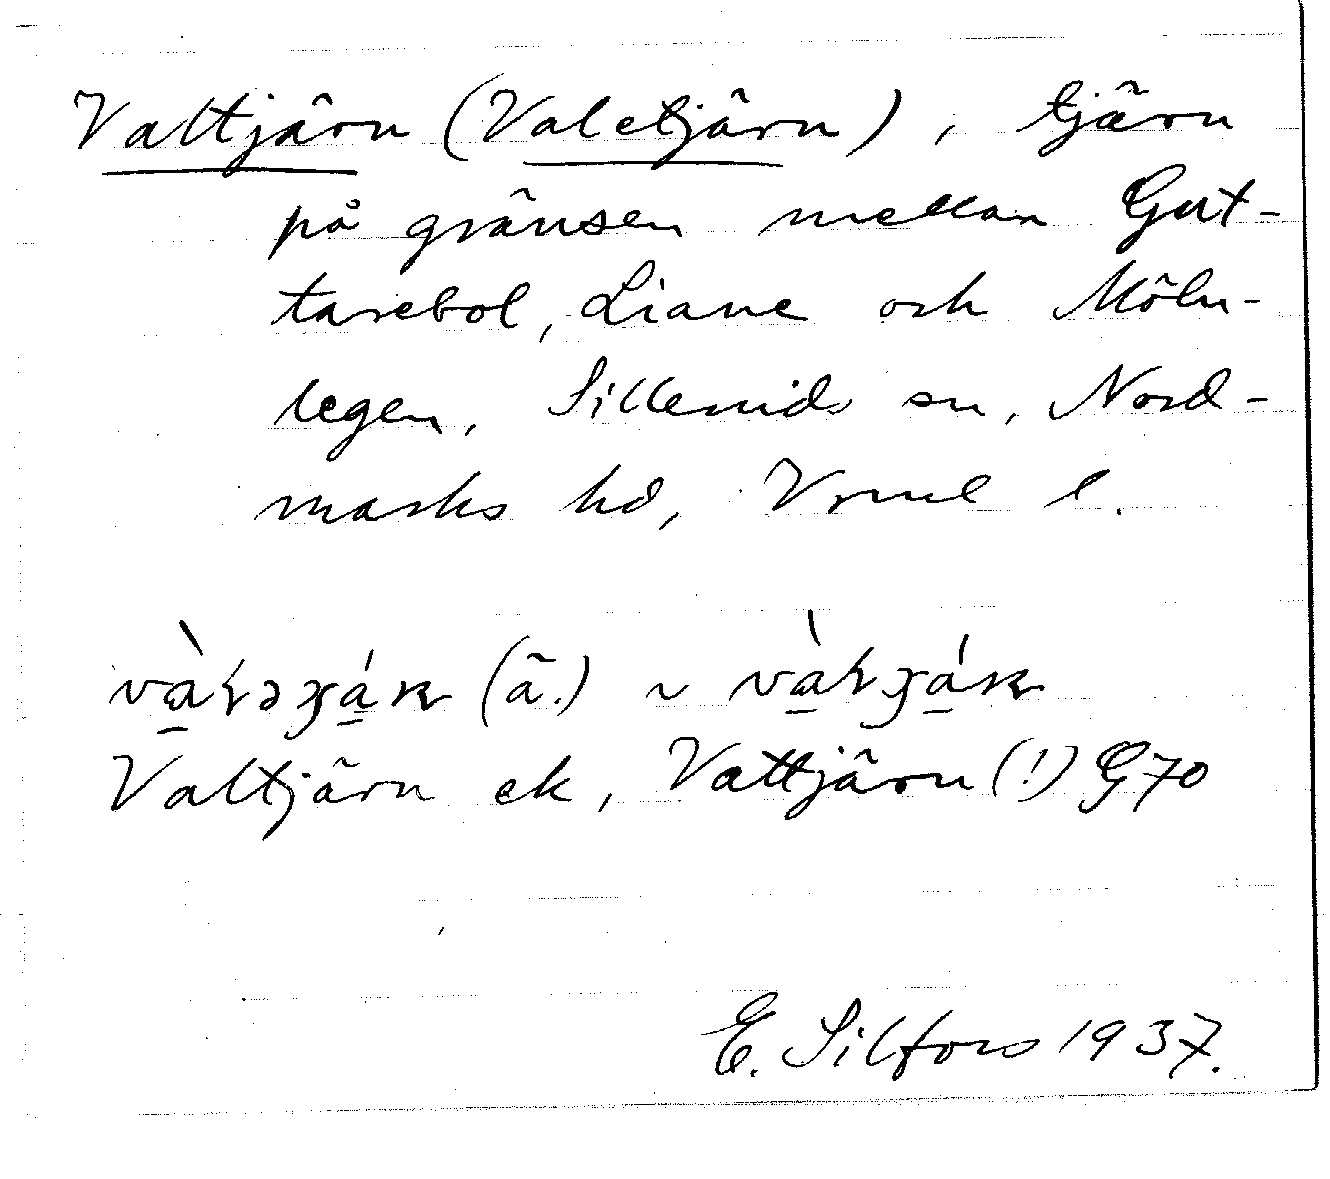 Valtjärn (Valetjärn), tjärn
på gränsen mellan Gut-
tarebol, Liane och Möln-
tegen, Sillerud sn, Nord-
marks hd, Vrml l.
(ä.) ~
Valtjärn ek, Vattjärn (!) G70
E. Silfors 1937.